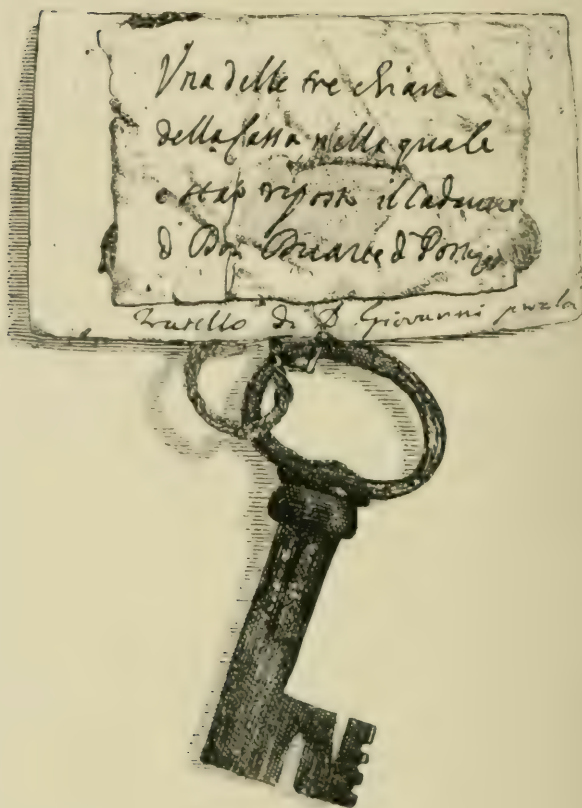 Una delle tre chiavi
della Cassa nella quale
e stato riposto il Cadauere
d Don Duarte d Portogo
Fratello di D. Giovanni